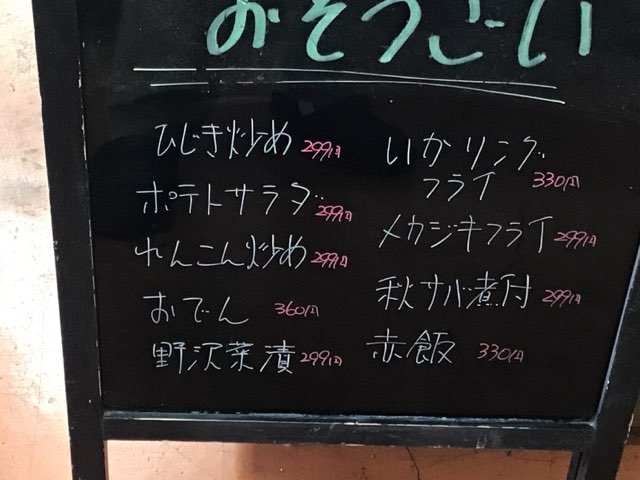 おそうざい
ひじき炒め 299円
ポテトサラダ 299円
れんこん炒め 299円
おでん 360円
野沢菜漬 299円
いかリング
フライ 330円
メカジキフライ 299円
秋サバ煮付 299円
赤飯 330円